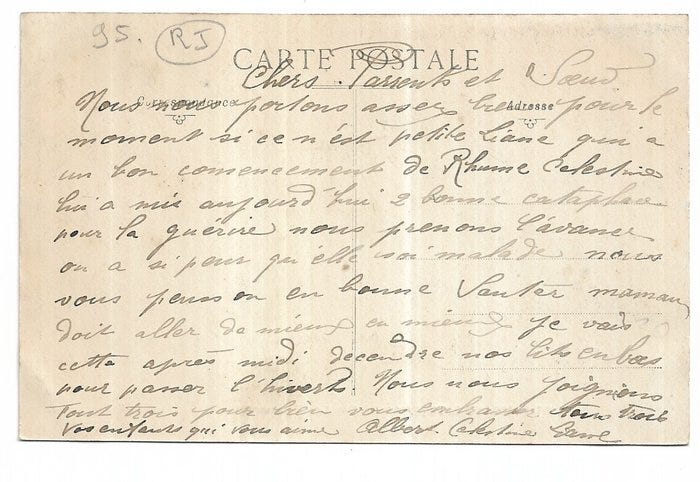 95. RJ
CARTE POSTALE
Chers Parrents et Sœur
Correspondance
Adresse
Nous nous portons assez bien pour le
moment si ce n'est petite Liane qui a
un bon comencement de Rhume Celestine
lui a mis aujourd'hui 2 bonne cataplasme
pour la guérire nous prenons l'avance
on a si peur qu'elle soi malade nous
vous penson en bonne Santer maman
doit aller de mieux en mieux je vais
cette après midi decendre nos lits en bas
pour passer l'hivert. Nous nous joignons
Tout trois pour bien vous embrasser tous trois
Vos enfants qui vous aime Albert Celestine Liane